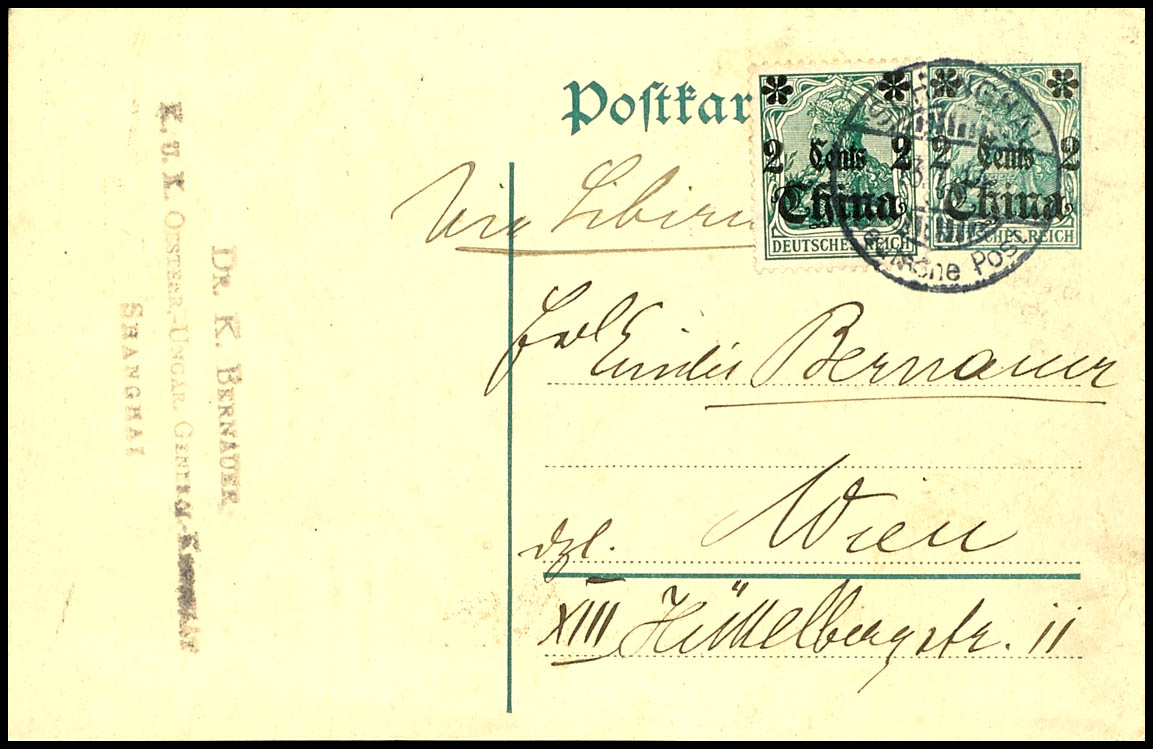 Postkar
2 Cents 2
China
DEUTSCHES REICH
2 Cents 2
China
SCHES REICH
SCHANGHAI
Deutsche Post
Via Sibirie
Frl Emilie Bernauer
Wien
dzl.
XIII Hüttelbergstr. 11
DR. K. BERNAUER.
K. U. K. OESTERR.-UNGAR. GENERAL-KONSULAT
SHANGHAI